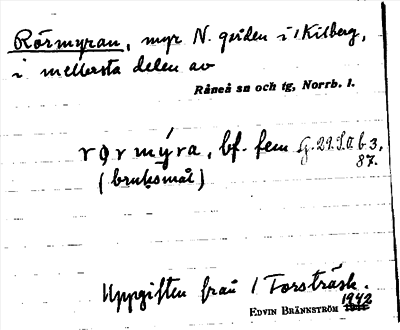 Rörmyran, myr N. gården i 1 Kilberg,
i mellersta delen av
Råneå sn och tg, Norrb. l.
rọrmýra, bf. fem
(bruksmål)
Uppgiften från 1 Forsträsk.
1942
EDVIN BRÄNNSTRÖM